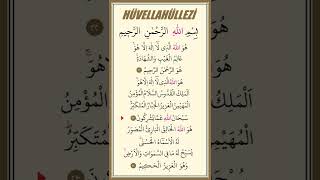 HÜVELLAHÜLLEZİ
بِسْمِ اللّٰهِ الرَّحْمٰنِ الرَّحِيمِ
هُوَ اللّٰهُ الَّذِى لَٓا اِلٰهَ اِلَّا هُوَ
عَالِمُ الْغَيْبِ وَالشَّهَادَةِ
هُوَ الرَّحْمٰنُ الرَّحِيمُ
هُوَ اللّٰهُ الَّذِى لَٓا اِلٰهَ اِلَّا هُوَ
اَلْمَلِكُ الْقُدُّوسُ السَّلَامُ الْمُؤْمِنُ
الْمُهَيْمِنُ الْعَزِيزُ الْجَبَّارُ الْمُتَكَبِّرُ
سُبْحَانَ اللّٰهِ عَمَّا يُشْرِكُونَ
هُوَ اللّٰهُ الْخَالِقُ الْبَارِئُ الْمُصَوِّرُ
لَهُ الْاَسْمَٓاءُ الْحُسْنٰى
يُسَبِّحُ لَهُ مَا فِى السَّمٰوَاتِ وَالْاَرْضِ
وَهُوَ الْعَزِيزُ الْحَكِيمُ